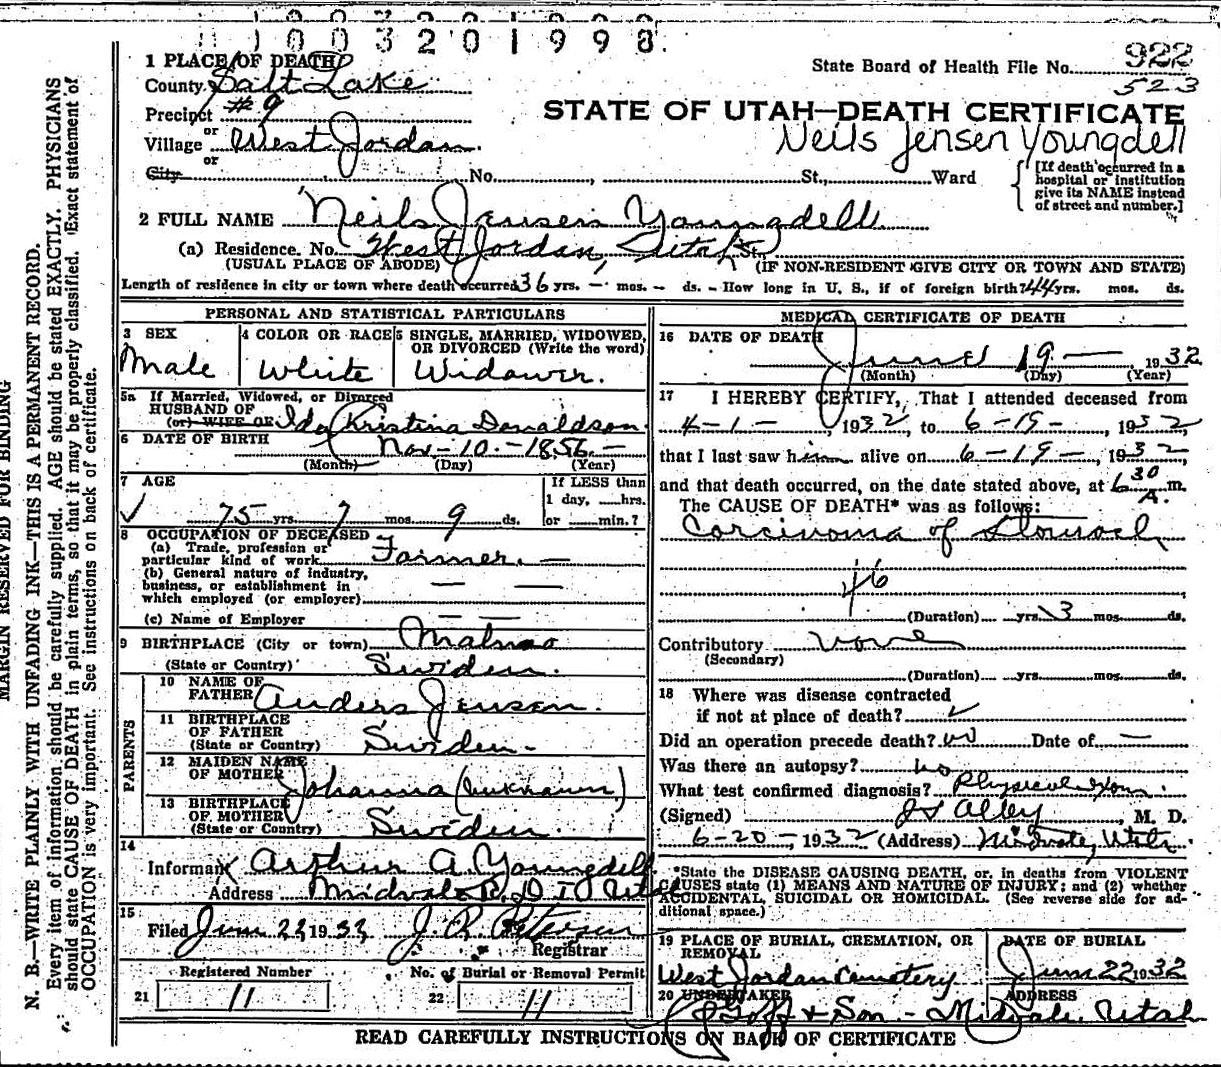 1003201998
1 PLACE OF DEATH
State Board of Health File No. 922
523
County Salt Lake
Precinct #9
STATE OF UTAH—DEATH CERTIFICATE
or
Village West Jordan
Neils Jensen Youngdell
or
City No. , St., Ward
[If death occurred in a hospital or institution give its NAME instead of street and number.]
2 FULL NAME Neils Jensen Youngdell
(a) Residence. No. West Jordan, Utah St.,
(USUAL PLACE OF ABODE) (IF NON-RESIDENT GIVE CITY OR TOWN AND STATE)
Length of residence in city or town where death occurred 36 yrs. — mos. — ds. — How long in U. S., if of foreign birth? 44 yrs. mos. ds.
PERSONAL AND STATISTICAL PARTICULARS
3 SEX
Male
4 COLOR OR RACE
White
5 SINGLE, MARRIED, WIDOWED, OR DIVORCED (Write the word)
Widower.
5a If Married, Widowed, or Divorced
HUSBAND OF
(or) WIFE OF Ida Kristina Donaldson
6 DATE OF BIRTH Nov - 10 - 1856 -
(Month) (Day) (Year)
7 AGE
If LESS than
1 day, hrs.
or min.?
75 yrs. 7 mos. 9 ds.
8 OCCUPATION OF DECEASED
(a) Trade, profession or
particular kind of work Farmer. —
(b) General nature of industry,
business, or establishment in
which employed (or employer) — —
(c) Name of Employer — —
9 BIRTHPLACE (City or town) Malmo
(State or Country) Sweden.
PARENTS
10 NAME OF
FATHER Anders Jensen.
11 BIRTHPLACE
OF FATHER
(State or Country) Sweden -
12 MAIDEN NAME
OF MOTHER Johanna (unknown)
13 BIRTHPLACE
OF MOTHER
(State or Country) Sweden.
14
Informant Arthur A. Youngdell
Address Midvale R.D. 1 Utah
15
Filed June 22, 1932, J. R. Peterson
Registrar
Registered Number No. of Burial or Removal Permit
21 11 22 11
MEDICAL CERTIFICATE OF DEATH
16 DATE OF DEATH
June 19 — 1932
(Month) (Day) (Year)
17 I HEREBY CERTIFY, That I attended deceased from
4-1-, 1932, to 6-19-, 1932,
that I last saw him alive on 6-19-, 1932,
and that death occurred, on the date stated above, at 6 30 A. m.
The CAUSE OF DEATH* was as follows:
Carcinoma of Stomach
46
(Duration) yrs. 3 mos. ds.
Contributory none
(Secondary)
(Duration) yrs. mos. ds.
18 Where was disease contracted
if not at place of death? ✓
Did an operation precede death? no Date of —
Was there an autopsy? no
What test confirmed diagnosis? Physical Exam.
(Signed) Alley, M. D.
6-20-, 1932 (Address) Midvale, Utah
*State the DISEASE CAUSING DEATH, or, in deaths from VIOLENT
CAUSES state (1) MEANS AND NATURE OF INJURY; and (2) whether
ACCIDENTAL, SUICIDAL OR HOMICIDAL. (See reverse side for ad-
ditional space.)
19 PLACE OF BURIAL, CREMATION, OR
REMOVAL
West Jordan Cemetery
DATE OF BURIAL
June 22 1932
20 UNDERTAKER
Goff & Son -
ADDRESS
Midvale, Utah
READ CAREFULLY INSTRUCTIONS ON BACK OF CERTIFICATE
MARGIN RESERVED FOR BINDING
N. B.—WRITE PLAINLY WITH UNFADING INK—THIS IS A PERMANENT RECORD.
Every item of information should be carefully supplied. AGE should be stated EXACTLY. PHYSICIANS
should state CAUSE OF DEATH in plain terms, so that it may be properly classified. Exact statement of
OCCUPATION is very important. See instructions on back of certificate.